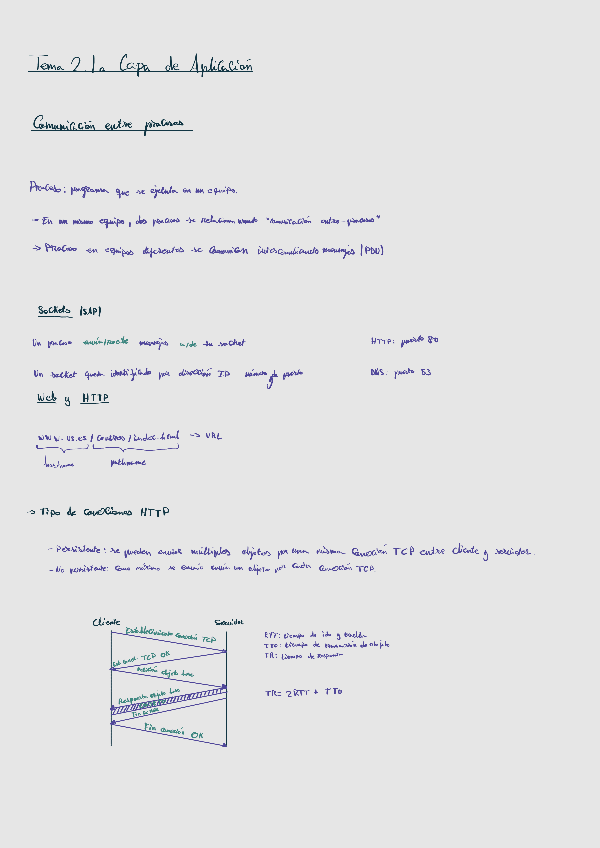 Tema 2. La Capa de Aplicación
Comunicación entre procesos
Proceso: programa que se ejecuta en un equipo.
→ En un mismo equipo, dos procesos se relacionan "comunicación entre-procesos"
→ Procesos en equipos diferentes se comunican intercambiando mensajes (PDU)
Sockets (SAP)
Un proceso envía/recibe mensajes a/de su socket
HTTP: puerto 80
Un socket queda identificado por dirección IP número de puerto
y
DNS: puerto 53
Web y HTTP
www.us.es/ /index.html → URL
hostname pathname
→ Tipo de conexiones HTTP
- Persistente: se pueden enviar múltiples objetos por una misma conexión TCP entre cliente y servidor.
- No persistente: como máximo se envía un objeto por cada conexión TCP
Cliente Servidor
Establecimiento conexión TCP
TCP OK
Petición objeto
Respuesta objeto
Fin conexión
Fin conexión OK
RTT: tiempo de ida y vuelta
TTO: tiempo de transmisión de objeto
TR: tiempo de respuesta
TR = 2RTT + TTO